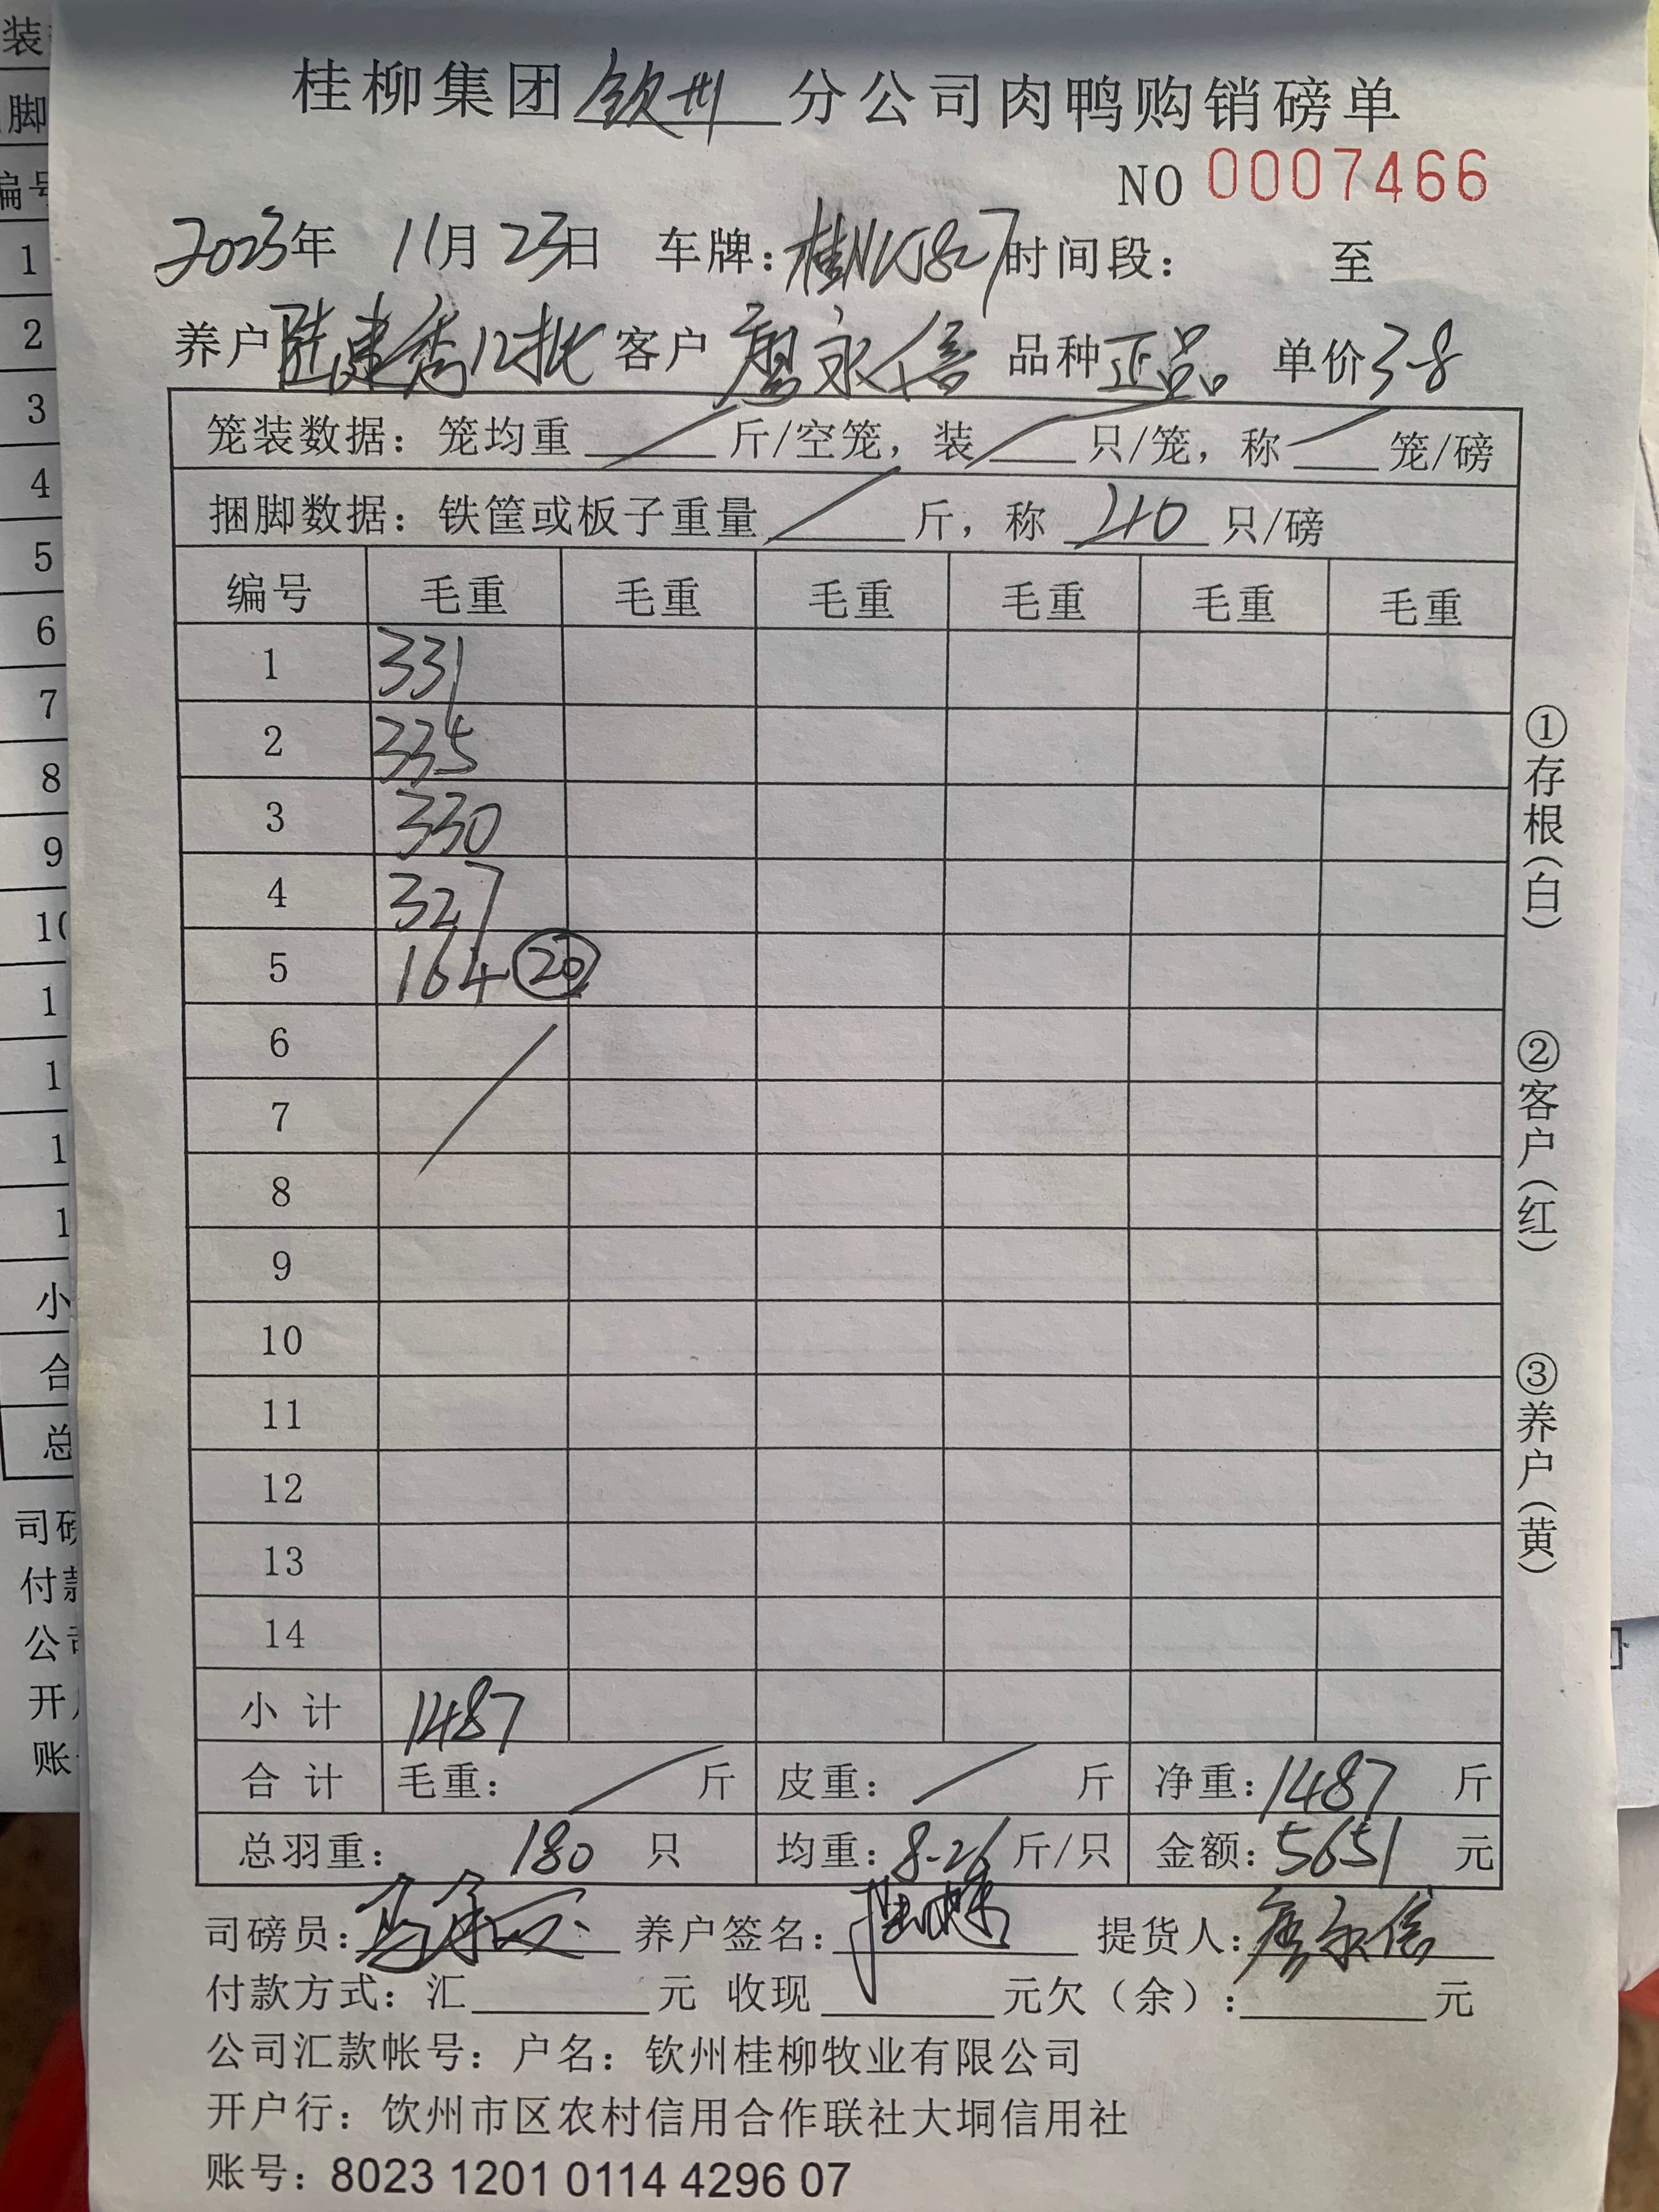 桂柳集团钦州分公司肉鸭购销磅单
NO 0007466
2023年 11月23日 车牌：桂N 时间段： 至
养户 陆建秀12批 客户 廖永信 品种 正品 单价3-8
笼装数据：笼均重 / 斤/空笼，装 / 只/笼，称 / 笼/磅
捆脚数据：铁筐或板子重量 / 斤，称 40 只/磅
编号 毛重 毛重 毛重 毛重 毛重 毛重
1 331
2 335
3 330
4 327
5 164 20
6
7
8
9
10
11
12
13
14
小计 1487
合计 毛重： / 斤 皮重： / 斤 净重：1487 斤
总羽重： 180 只 均重：8-26 斤/只 金额：5651 元
司磅员： 养户签名： 提货人：廖永信
付款方式：汇 元 收现 元欠（余）： 元
公司汇款帐号：户名：钦州桂柳牧业有限公司
开户行：钦州市区农村信用合作联社大垌信用社
账号：8023 1201 0114 4296 07
①存根（白）
②客户（红）
③养户（黄）